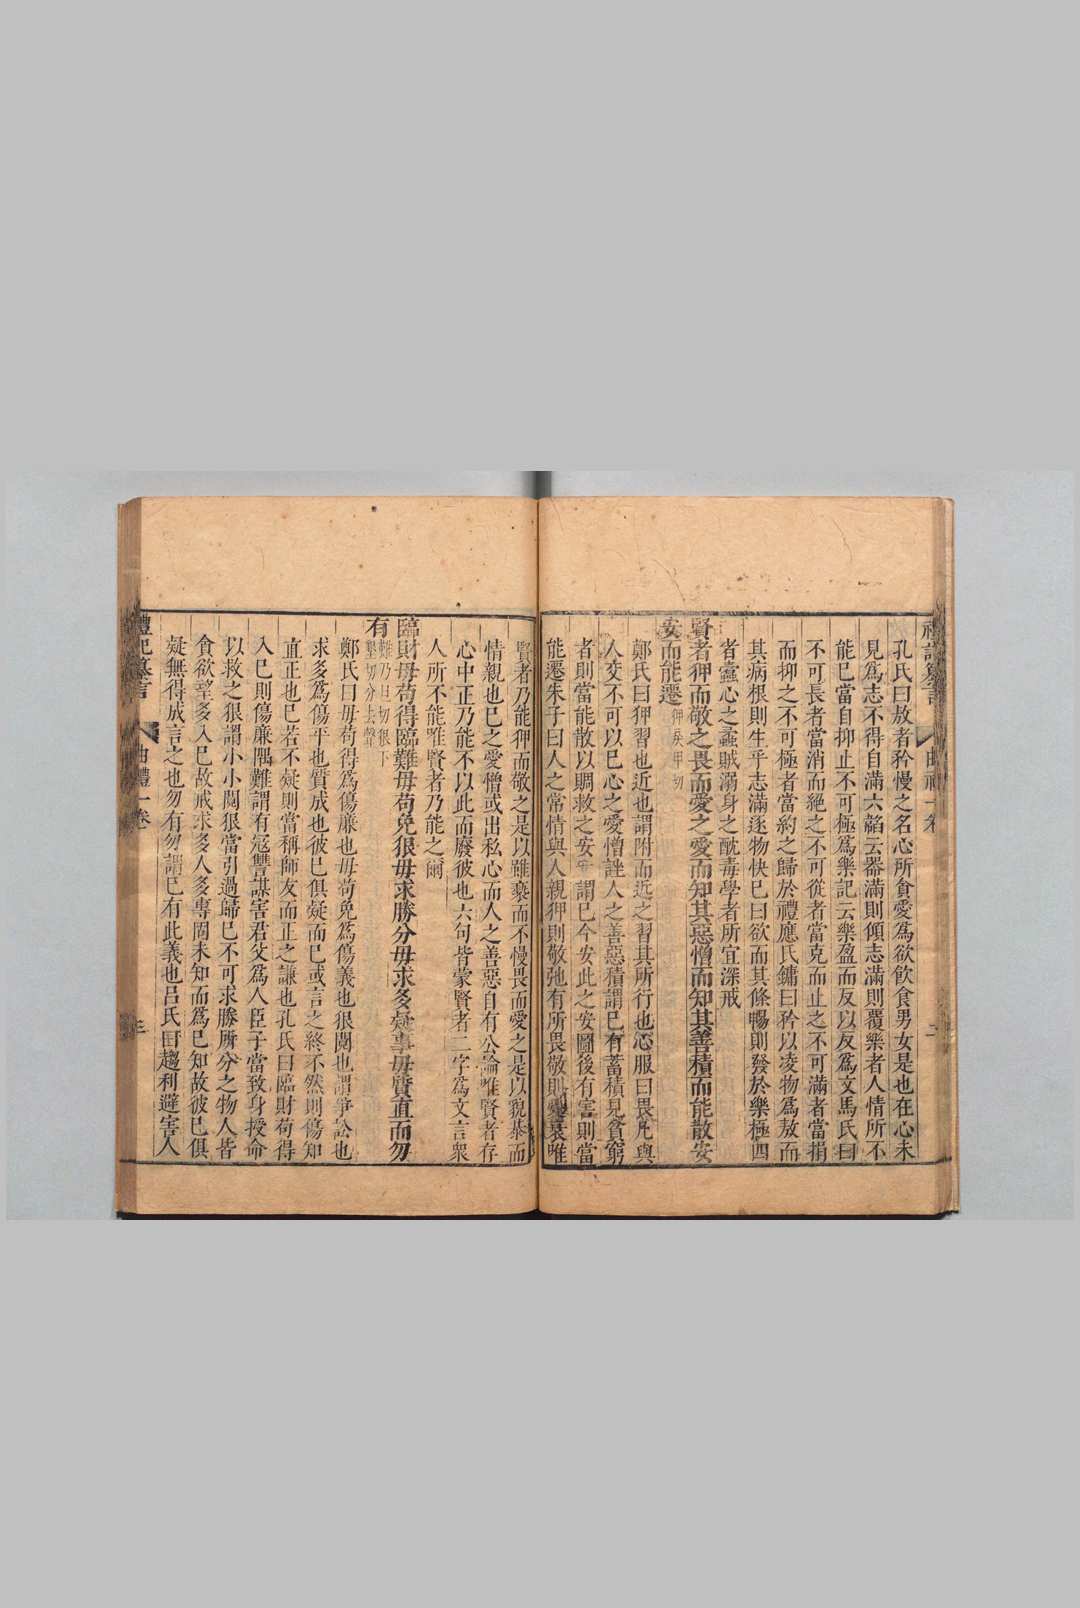 孔氏曰敖者矜慢之名心所貪愛爲欲飲食男女是也在心未
見爲志不得自滿六韜云器滿則傾志滿則覆樂者人情所不
能已當自抑止不可極爲樂記云樂盈而反以反爲文馬氏曰
不可長者當消而絕之不可從者當克而止之不可滿者當損
而抑之不可極者當約之歸於禮應氏鏞曰矜以凌物爲敖而
其病根則生乎志滿逐物快己曰欲而其條暢則發於樂極四
者蠹心之蟊賊溺身之酖毒學者所宜深戒
賢者狎而敬之畏而愛之愛而知其惡憎而知其善積而能散安
安而能遷 狎戾甲切
鄭氏曰狎習也近也謂附而近之習其所行也心服曰畏凡與
人交不可以己心之愛憎誣人之善惡積謂己有蓄積見貧窮
者則當能散以賙救之安安謂己今安此之安圖後有害則當
能遷朱子曰人之常情與人親狎則敬弛有所畏敬則愛衰唯
賢者乃能狎而敬之是以雖䙝而不慢畏而愛之是以貌恭而
情親也己之愛憎或出私心而人之善惡自有公論唯賢者存
心中正乃能不以此而廢彼也六句皆蒙賢者二字爲文言衆
人所不能唯賢者乃能之爾
臨財毋苟得臨難毋苟免狠毋求勝分毋求多疑事毋質直而勿
有 難乃旦切狠下墾切分去聲
鄭氏曰毋苟得爲傷廉也毋苟免爲傷義也狠鬩也謂爭訟也
求多爲傷平也質成也彼己俱疑而己或言之終不然則傷知
直正也己若不疑則當稱師友而正之謙也孔氏曰臨財苟得
入己則傷廉隅難謂有寇讐謀害君父爲人臣子當致身授命
以救之狠謂小小鬩狠當引過歸己不可求勝所分之物人皆
貪欲望多入己故戒求多人多專固未知而爲己知故彼己俱
疑無得成言之也勿有勿謂己有此義也呂氏曰趨利避害人
禮記纂言 曲禮一卷 三